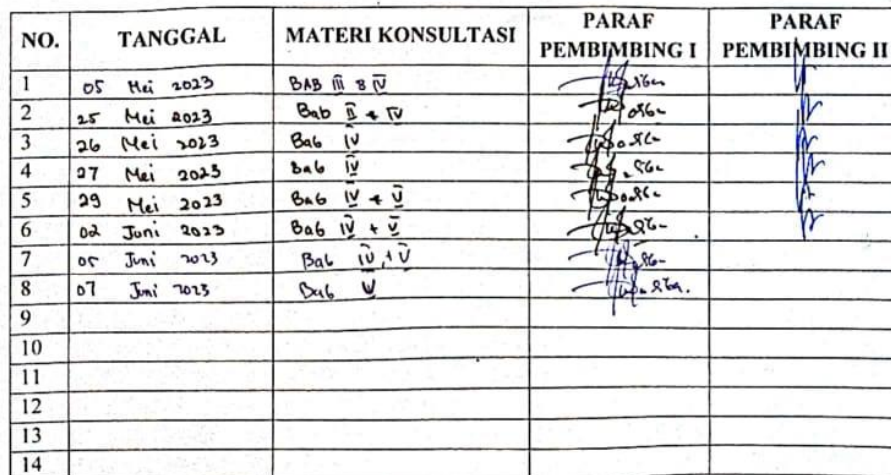 NO. TANGGAL MATERI KONSULTASI PARAF PEMBIMBING I PARAF PEMBIMBING II
1 05 Mei 2023 BAB III & IV
2 25 Mei 2023 Bab II + IV
3 26 Mei 2023 Bab IV
4 27 Mei 2023 Bab IV
5 29 Mei 2023 Bab IV + V
6 02 Juni 2023 Bab IV + V
7 05 Juni 2023 Bab IV, + V
8 07 Juni 2023 Bab V
9
10
11
12
13
14